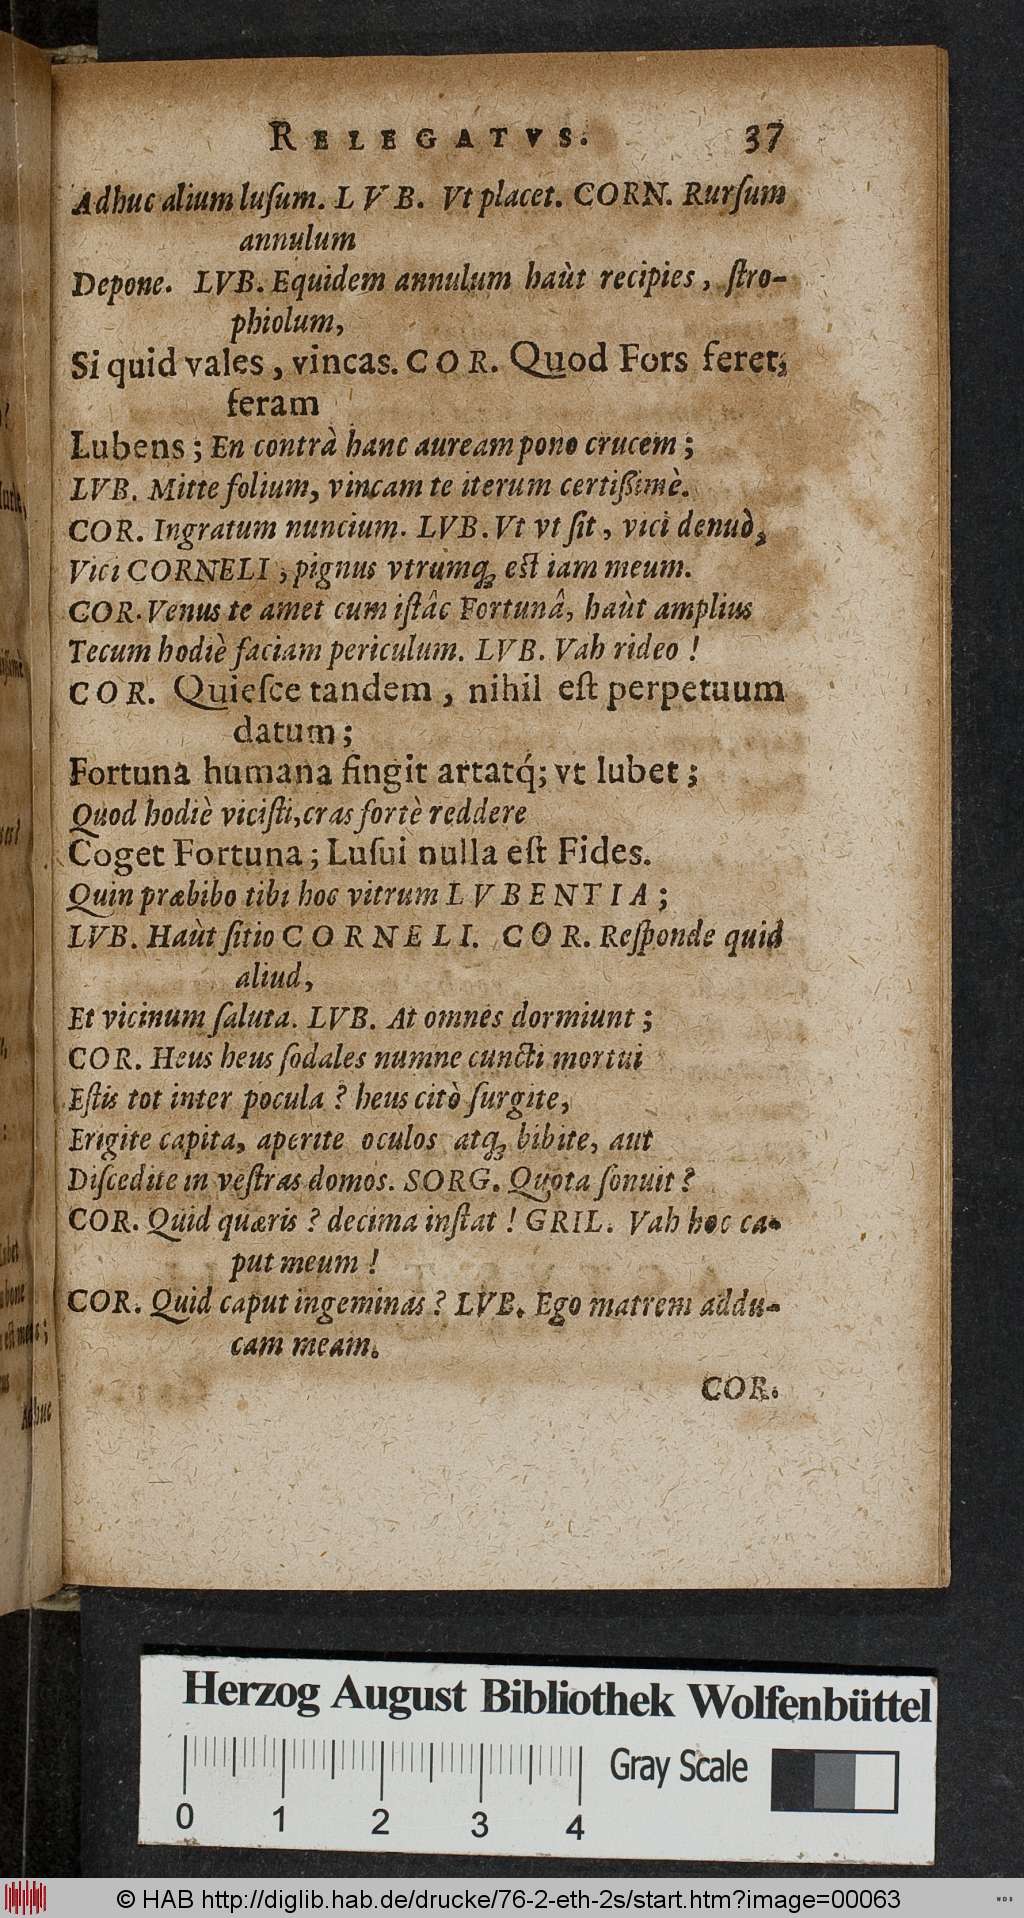 RELEGATVS. 37
Adhuc alium luſum. LVB. Vt placet. CORN. Rurſum
annulum
Depone. LVB. Equidem annulum haùt recipies, ſtro-
phiolum,
Si quid vales, vincas. COR. Quod Fors feret,
feram
Lubens; En contrà hanc auream pono crucem;
LVB. Mitte folium, vincam te iterum certißimè.
COR. Ingratum nuncium. LVB. Vt vt ſit, vici denuò,
Vici CORNELI, pignus vtrumq́; eſt iam meum.
COR. Venus te amet cum iſtâc Fortunâ, haùt amplius
Tecum hodiè faciam periculum. LVB. Vah rideo!
COR. Quieſce tandem, nihil eſt perpetuum
datum;
Fortuna humana fingit artatq́; vt lubet;
Quod hodiè viciſti, cras fortè reddere
Coget Fortuna; Luſui nulla eſt Fides.
Quin præbibo tibi hoc vitrum LVBENTIA;
LVB. Haùt ſitio CORNELI. COR. Reſponde quid
aliud,
Et vicinum ſaluta. LVB. At omnes dormiunt;
COR. Heus heus ſodales numne cuncti mortui
Eſtis tot inter pocula? heus citò ſurgite,
Erigite capita, aperite oculos atq; bibite, aut
Diſcedite in veſtras domos. SORG. Quota ſonuit?
COR. Quid quæris? decima inſtat! GRIL. Vah hoc ca-
put meum!
COR. Quid caput ingeminas? LVB. Ego matrem addu-
cam meam.
COR.
Herzog August Bibliothek Wolfenbüttel
Gray Scale
0 1 2 3 4
© HAB http://diglib.hab.de/drucke/76-2-eth-2s/start.htm?image=00063